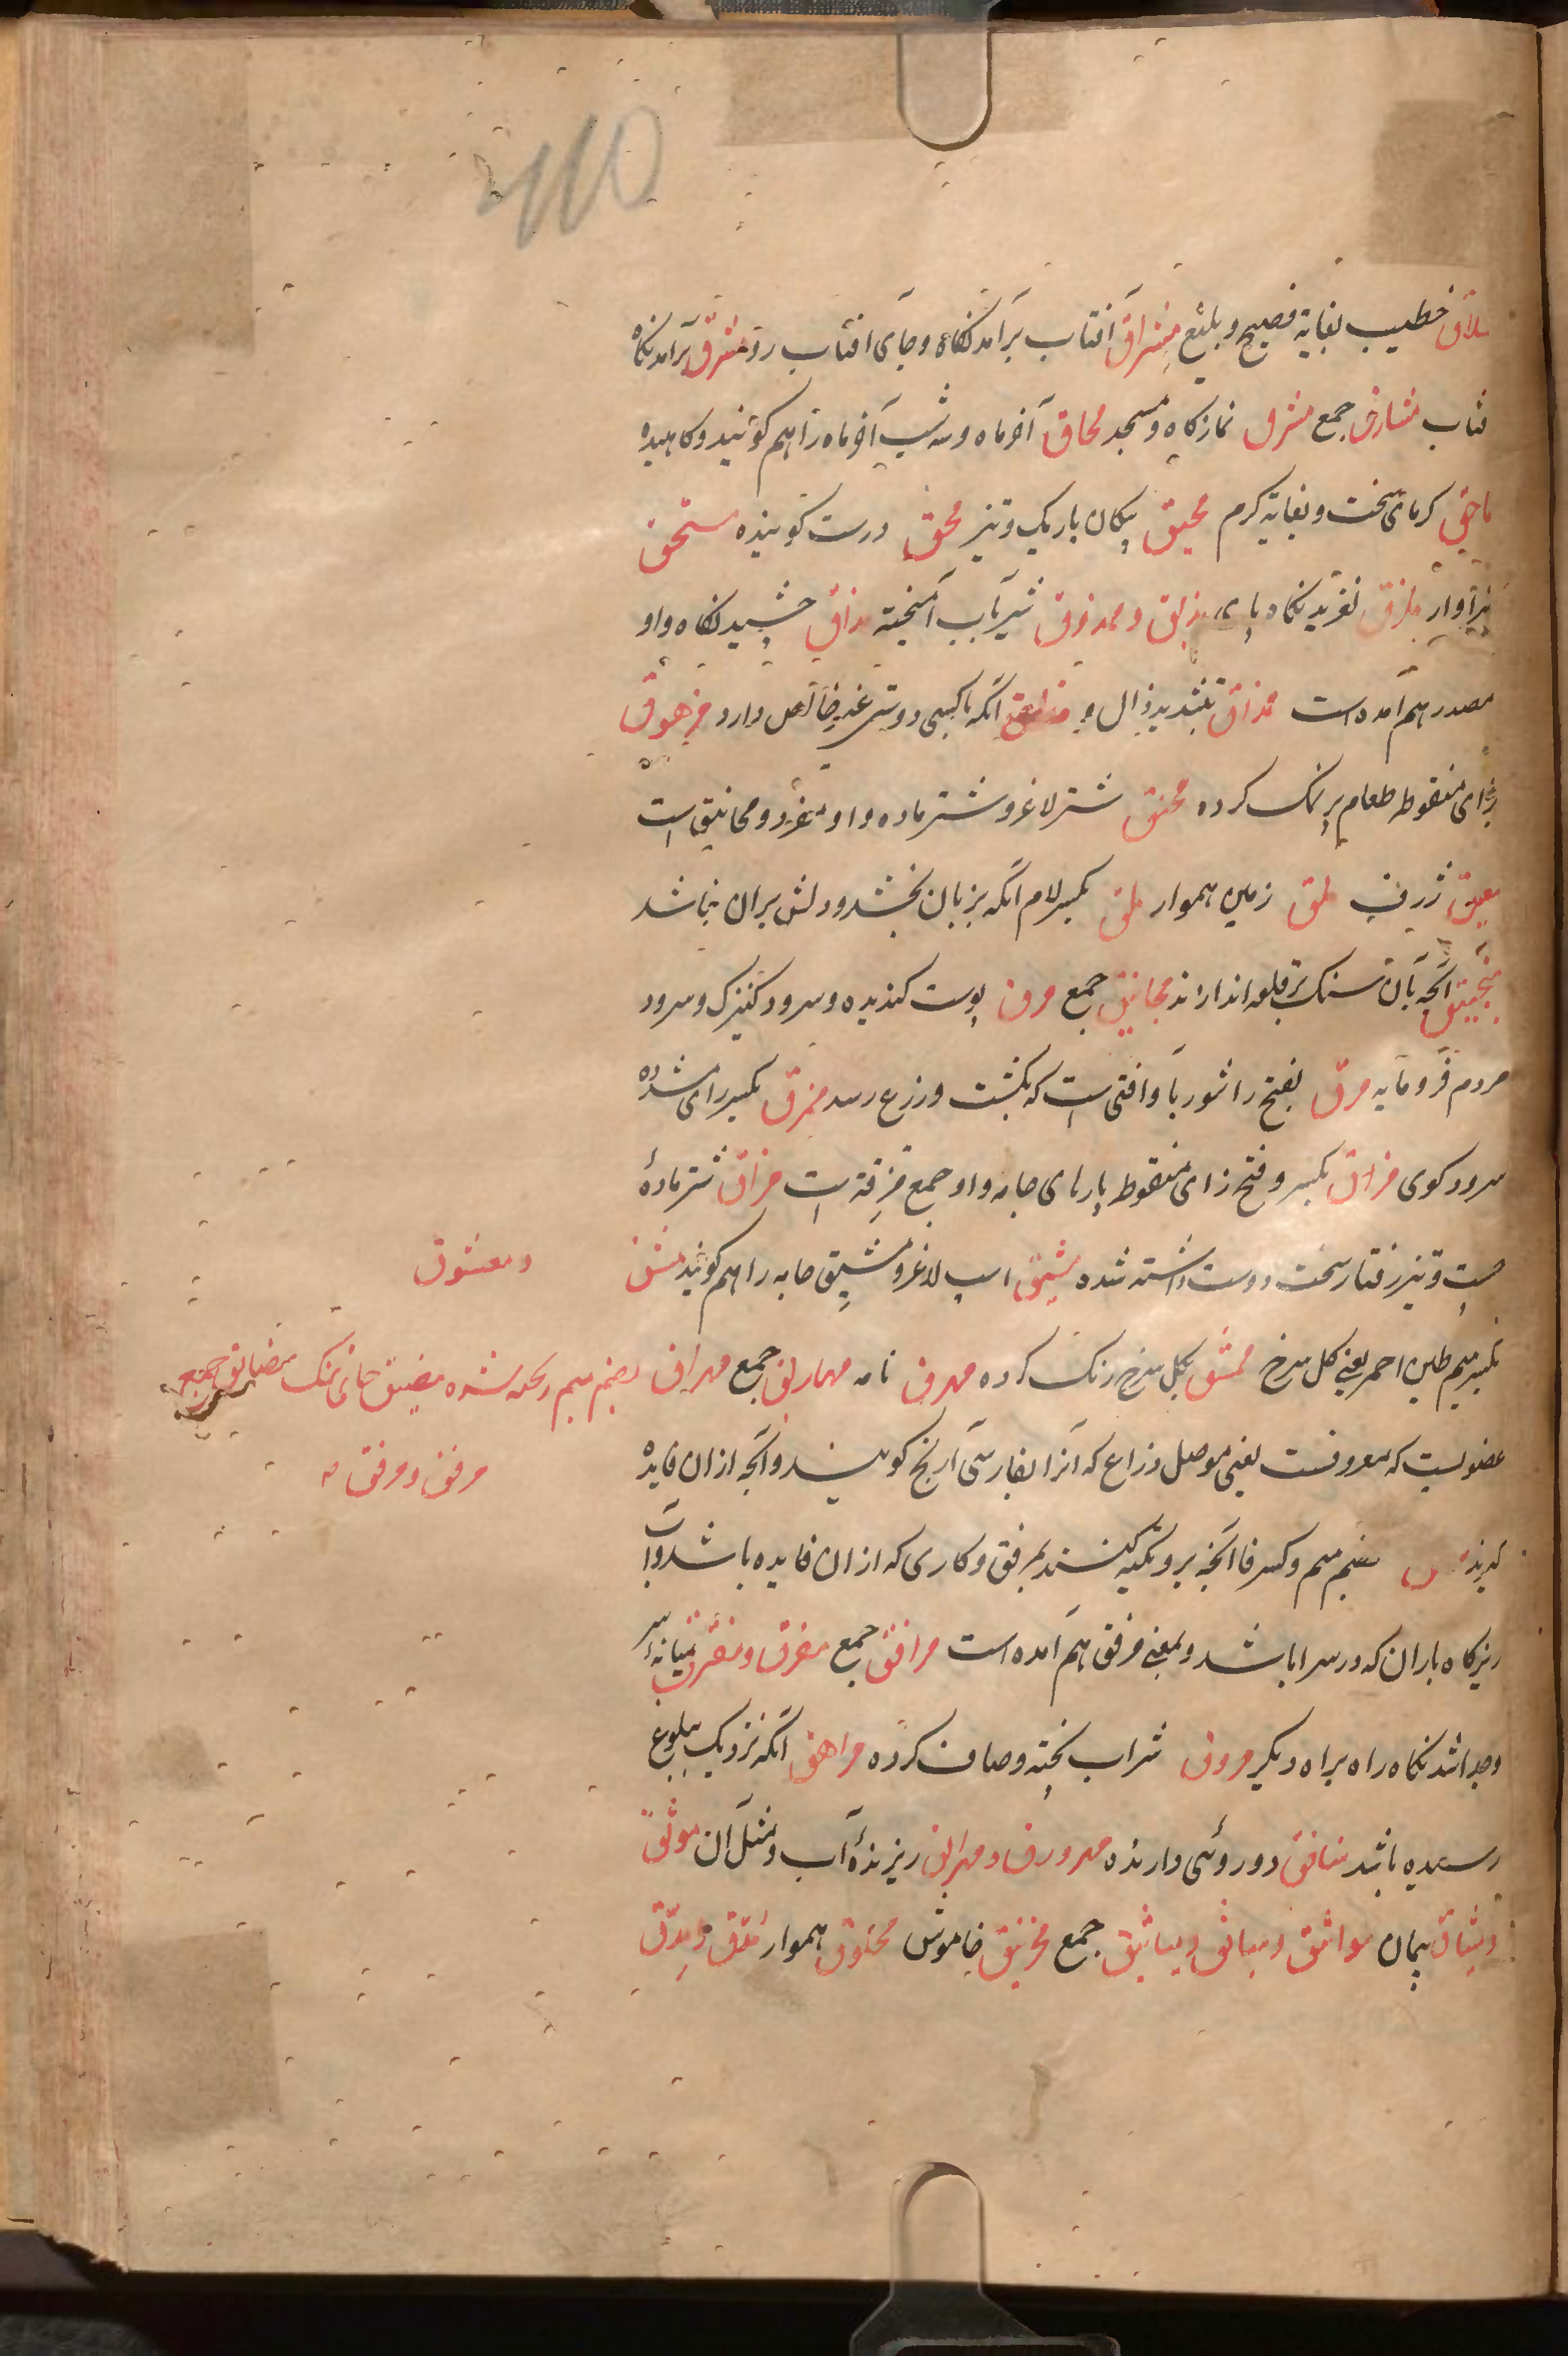 سلاق خطیب بغایة فصیح و بلیغ مشراق آفتاب برآمدنکاه و جای افتاب رو مشرق برآمدنکاه
فتاب مشارق جمع مشرق نمازکاه و مسجد محاق آخر ماه و سه شب آخر ماه را هم کویند و کاهیده
ماحق کرمای سخت و بغایة کرم محیق پیکان باریک و تیز محق درست کوینده مستحق
سزاوار مزلق لغزیدنکاه پای مذیق و ممذوق شیر بآب آمیخته مذاق چشیدنکاه و او
مصدر هم آمده است مذاق بتشدید ذال و مماذق آنکه با کسی دوستی غیر خالص دارد مزهوق
بزای منقوطه طعام پر نمک کرده محنق شتر لاغر و شتر ماده و او مفرد و محانیق است
معیق ژرف ملق زمین هموار ملق بکسر لام آنکه بزبان بخشد و دلش بران نباشد
منجنیق آنچه بآن سنک بر قلعه اندازند مجانیق جمع مرق پوست کندیده و سرود کنیزک و سرود
مردم فرومایه مرق بفتح را شوربا و افتی است که بکشت و زرع رسد ممرق بکسر رای مشدده
سرود کوی مزاق بکسر و فتح زای منقوط پارهای جامه و او جمع مزقة است مزاق شتر مادهٔ
چست و تیز رفتار سخت دوست داشته شده مشیق اسب لاغر و مشیق جامه را هم کویند مشق
و معشوق
بکسر میم طین احمر یعنی کل سرخ ممشق بکل سرخ رنک کرده مهرق نامه مهارق جمع مهراق بضم میم ریخته شده مضیق جای تنک مضایق جمع
عضویست که معروفست یعنی موصل ذراع که آنرا بفارسی آرنج کویند و آنچه ازان فایده
مرفق و مرفق
کیرند بفتح میم و کسر فا آنچه برو تکیه کنند بمرفق و کاری که ازان فایده باشد و آب
ریزکاه باران که در سرا باشد و بمعنی مرفق هم آمده است مرافق جمع مفرق و مفرق میانهٔ سر
و جدا شدنکاه راه براه دیکر مروق شراب پخته و صاف کرده مراهق آنکه نزدیک ببلوغ
رسیده باشد منافق دو روئی دارنده مهرورق و مهراق ریزندهٔ آب و مثل آن موثق
و میثاق پیمان مواثق و میاثق و میاثیق جمع مخرنبق خاموش مخلولق هموار مدق و مدق